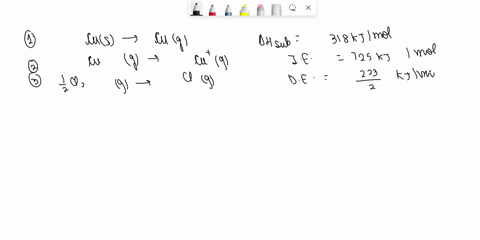 ① Cu(s) → Cu(g) ΔHsub = 318 kJ/mol
② Cu (g) → Cu⁺(g) I.E. = 725 kJ /mol
③ 1/2 Cl₂ (g) → Cl (g) D.E. = 223/2 kJ/mol